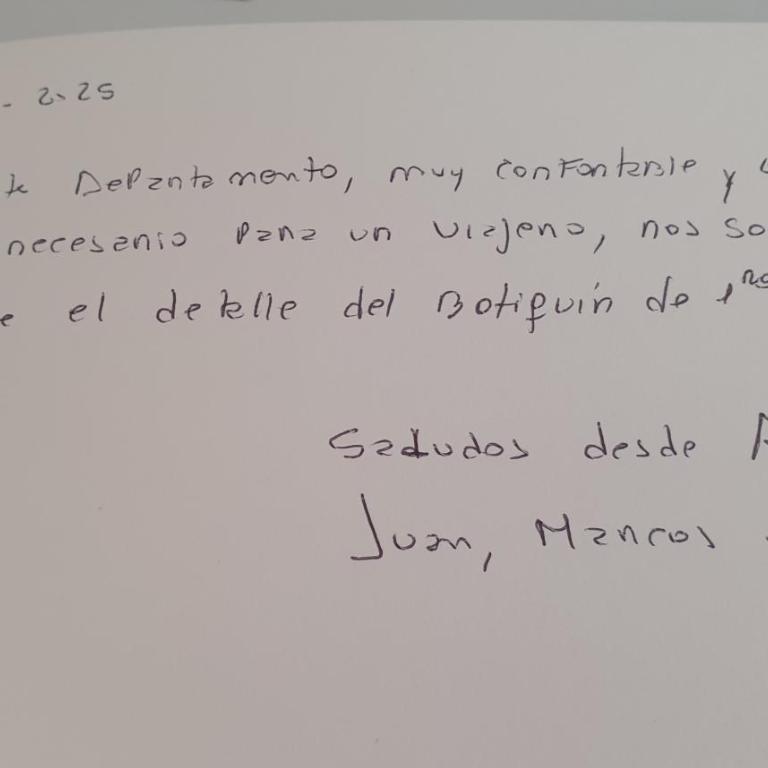 - 2-25
Departamento, muy confortable y
necesario para un viajero, nos
e el detalle del Botiquín de 1ros
Saludos desde A
Juan, Marcos